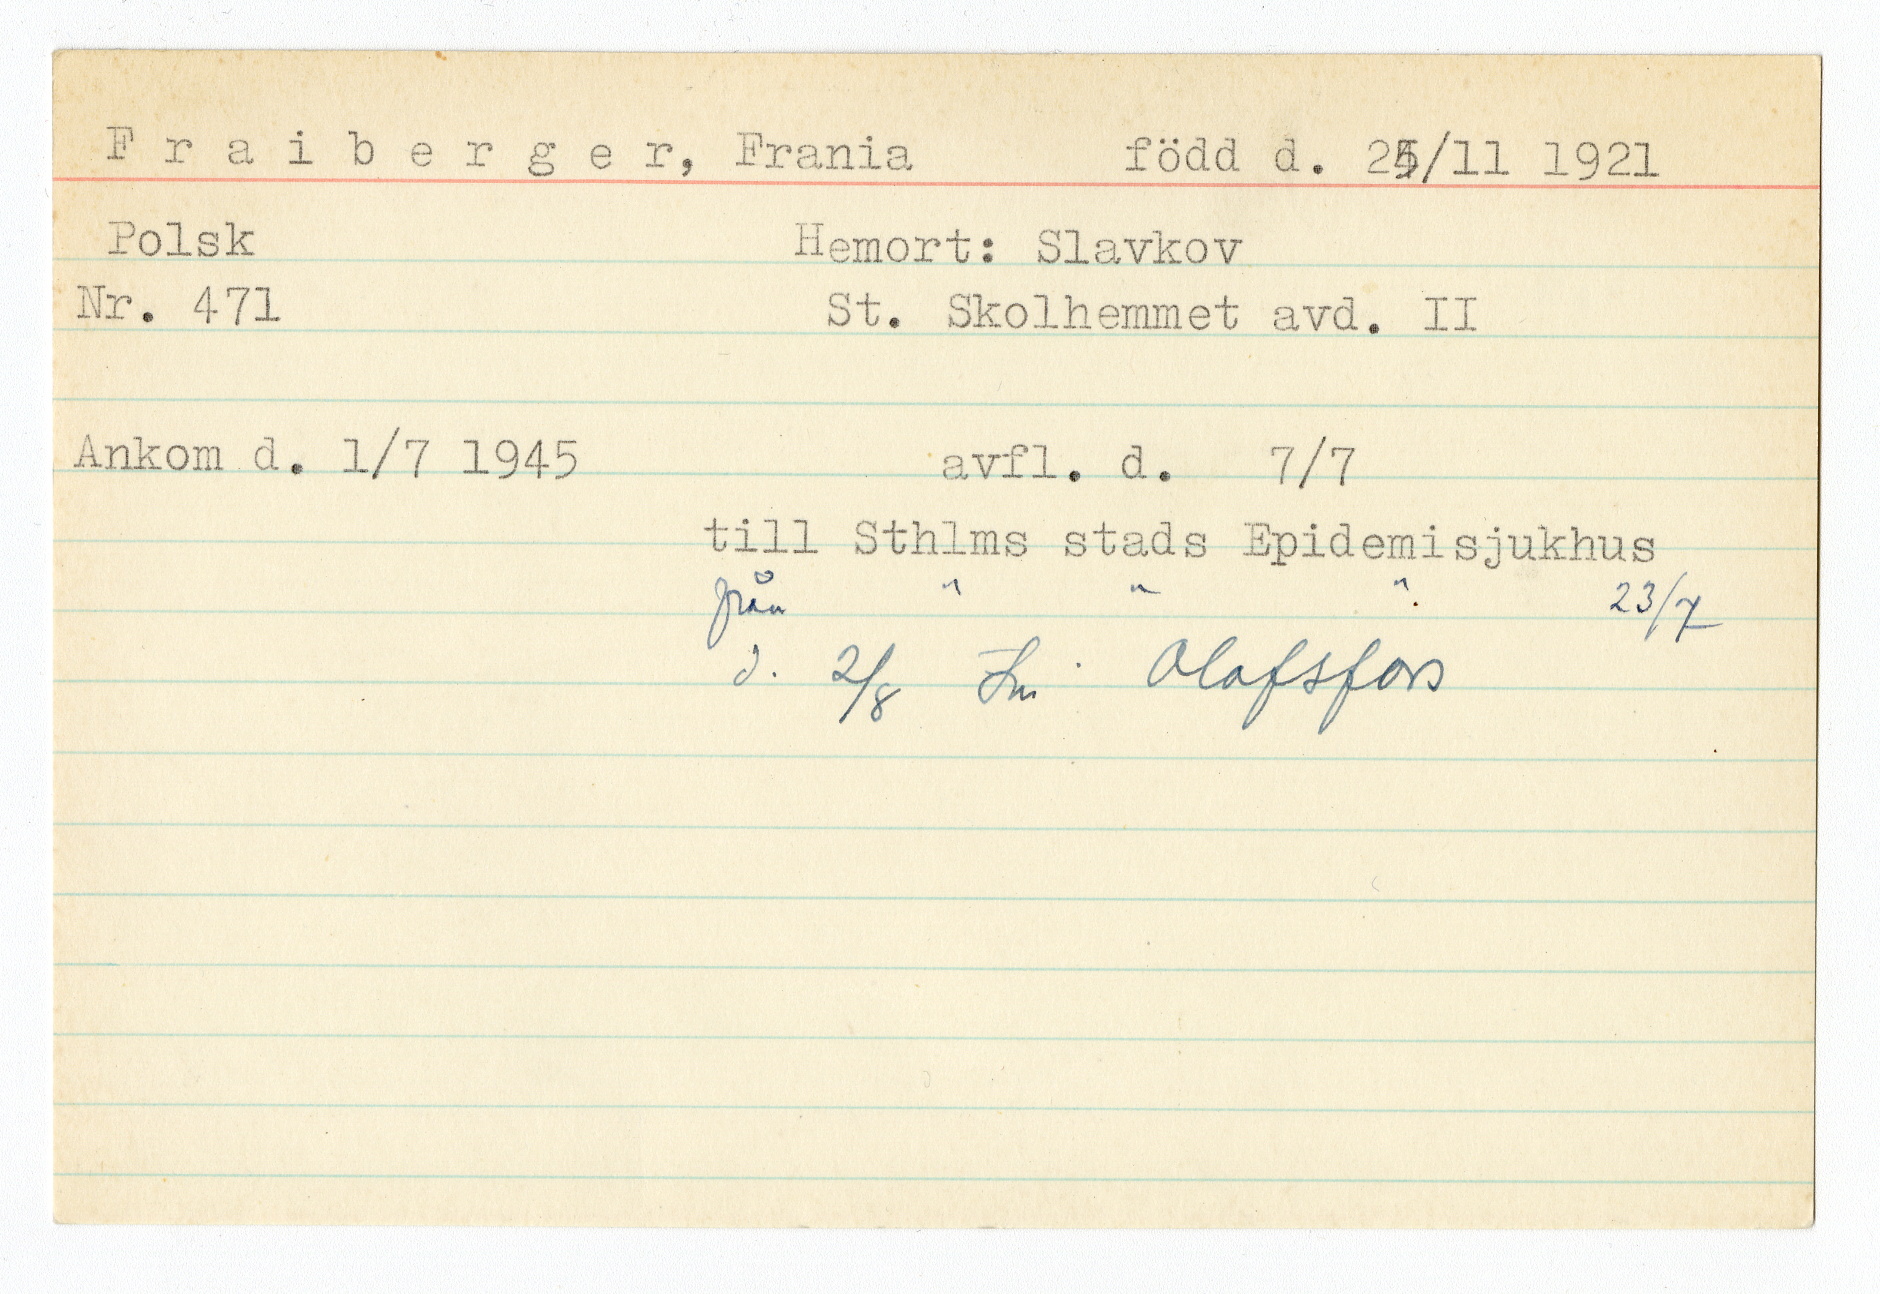 F r a i b e r g e r, Frania född d. 25/11 1921
Polsk Hemort: Slavkov
Nr. 471 St. Skolhemmet avd. II
Ankom d. 1/7 1945 avfl. d. 7/7
till Sthlms stads Epidemisjukhus
från " " " 23/7
d. 2/8 Olofsfors